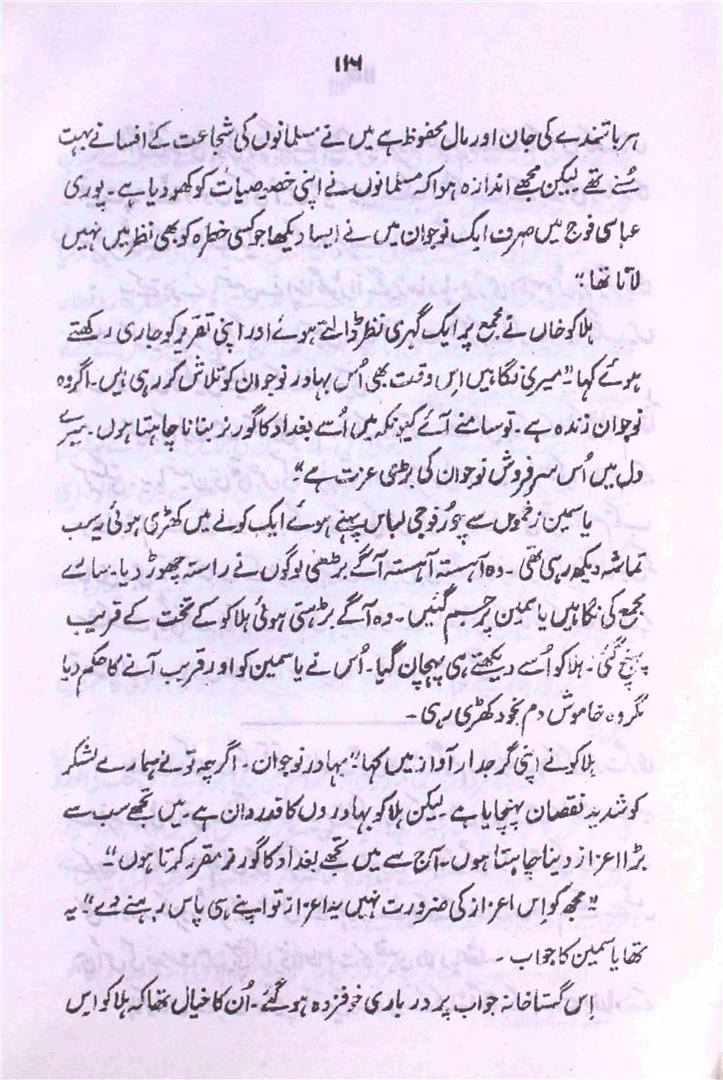 ۱۱۶
ہر باشندے کی جان اور مال محفوظ ہے میں نے مسلمانوں کی شجاعت کے افسانے بہت
سُنے تھے لیکن مجھے اندازہ ہوا کہ مسلمانوں نے اپنی خصوصیات کو کھو دیا ہے۔ پوری
عباسی فوج میں صرف ایک نوجوان میں نے ایسا دیکھا جو کسی خطرہ کو بھی نظر میں نہیں
لاتا تھا"
ہلاکو خاں نے مجمع پر ایک گہری نظر ڈالتے ہوئے اور اپنی تقریر کو جاری رکھتے
ہوئے کہا "میری نگاہیں اِس وقت بھی اُس بہادر نوجوان کو تلاش کر رہی ہیں۔ اگر وہ
نوجوان زندہ ہے۔ تو سامنے آئے کیونکہ میں اُسے بغداد کا گورنر بنانا چاہتا ہوں۔ میرے
دل میں اُس سرفروش نوجوان کی بڑی عزت ہے"
یاسمین زخموں سے چور فوجی لباس پہنے ہوئے ایک کونے میں کھڑی ہوئی یہ سب
تماشہ دیکھ رہی تھی۔ وہ آہستہ آہستہ آگے بڑھی لوگوں نے راستہ چھوڑ دیا۔ سارے
مجمع کی نگاہیں یاسمین پر جم گئیں۔ وہ آگے بڑہتی ہوئی ہلاکو کے تخت کے قریب
پہنچ گئی۔ ہلاکو اُسے دیکھتے ہی پہچان گیا۔ اُس نے یاسمین کو اور قریب آنے کا حکم دیا
مگر وہ خاموش دم بخود کھڑی رہی۔
ہلاکو نے اپنی گرجدار آواز میں کہا "بہادر نوجوان۔ اگرچہ تو نے ہمارے لشکر
کو شدید نقصان پہنچایا ہے۔ لیکن ہلاکو بہادروں کا قدردان ہے۔ میں تجھے سب سے
بڑا اعزاز دینا چاہتا ہوں۔ آج سے میں تجھے بغداد کا گورنر مقرر کرتا ہوں"
"مجھ کو اِس اعزاز کی ضرورت نہیں یہ اعزاز تو اپنے ہی پاس رہنے دے" یہ
تھا یاسمین کا جواب۔
اِس گستاخانہ جواب پر درباری خوفزدہ ہو گئے۔ اُن کا خیال تھا کہ ہلاکو اس